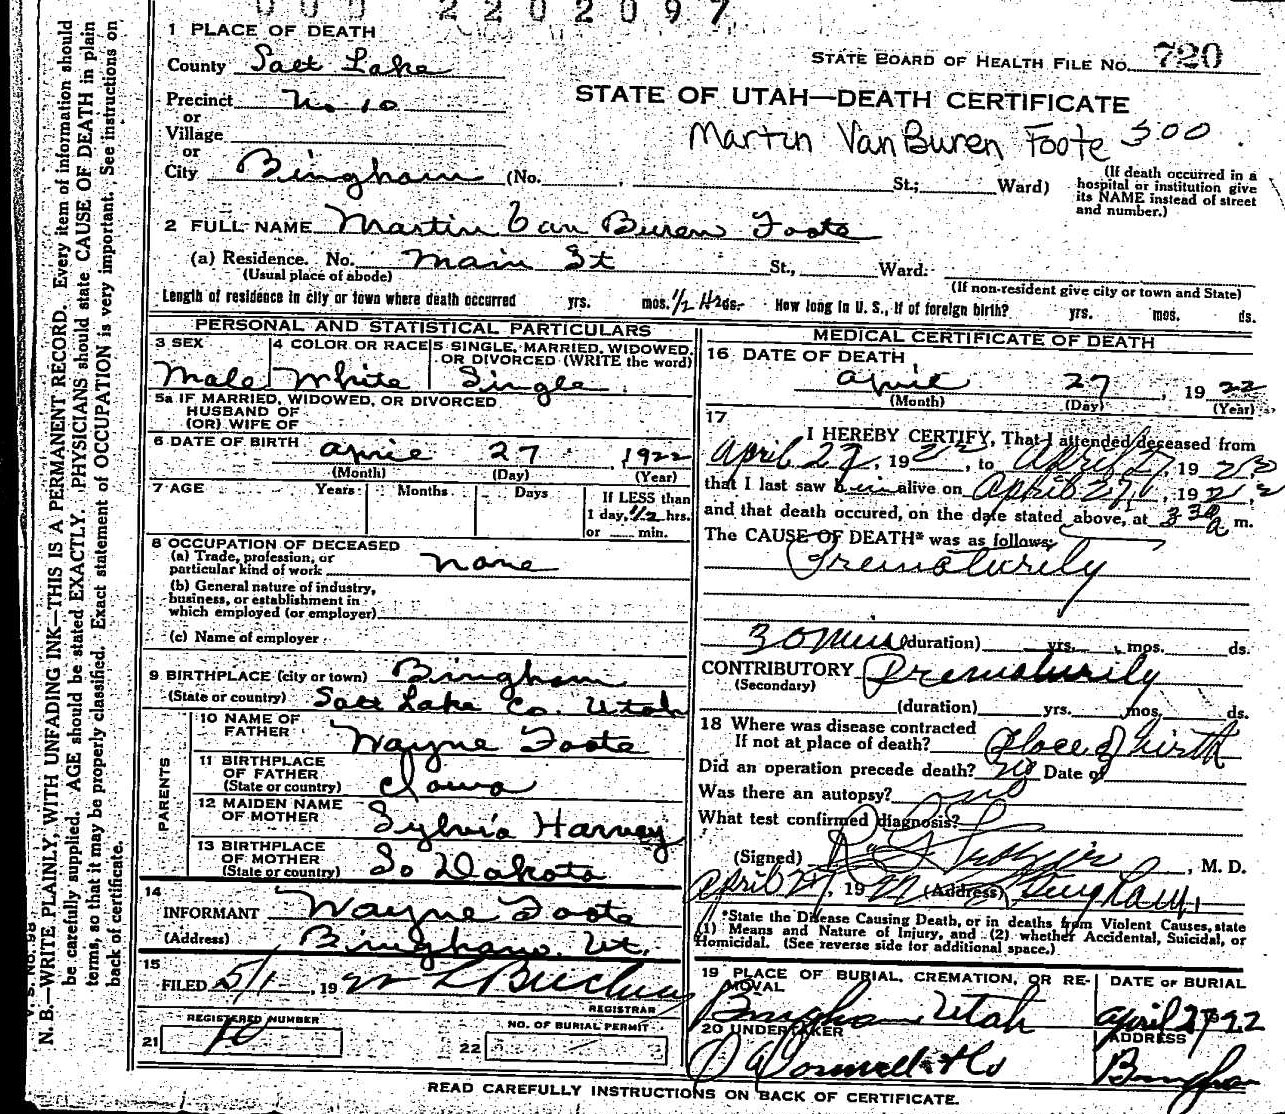 000 2202097
1 PLACE OF DEATH
County Salt Lake
STATE BOARD OF HEALTH FILE NO. 720
Precinct No 10
or
Village
or
City Bingham (No. , St.; Ward)
STATE OF UTAH—DEATH CERTIFICATE
Martin VanBuren Foote 500
(If death occurred in a
hospital or institution give
its NAME instead of street
and number.)
2 FULL NAME Martin Van Buren Foote
(a) Residence. No. Main St St., Ward.
(Usual place of abode)
(If non-resident give city or town and State)
Length of residence in city or town where death occurred yrs. mos. 1/2 Hr ds. How long in U. S., if of foreign birth? yrs. mos. ds.
PERSONAL AND STATISTICAL PARTICULARS
3 SEX 4 COLOR OR RACE 5 SINGLE, MARRIED, WIDOWED,
OR DIVORCED (WRITE the word)
Male White Single
5a IF MARRIED, WIDOWED, OR DIVORCED
HUSBAND OF
(OR) WIFE OF
6 DATE OF BIRTH April 27, 1922
(Month) (Day) (Year)
7 AGE Years Months Days If LESS than
1 day, 1/2 hrs.
or min.
8 OCCUPATION OF DECEASED
(a) Trade, profession, or
particular kind of work none
(b) General nature of industry,
business, or establishment in
which employed (or employer)
(c) Name of employer
9 BIRTHPLACE (city or town) Bingham
(State or country) Salt Lake Co. Utah
PARENTS
10 NAME OF
FATHER Wayne Foote
11 BIRTHPLACE
OF FATHER
(State or country) Iowa
12 MAIDEN NAME
OF MOTHER Sylvia Harvey
13 BIRTHPLACE
OF MOTHER
(State or country) So Dakota
14
INFORMANT Wayne Foote
(Address) Bingham. Ut.
15
FILED 5/1, 19
REGISTRAR
REGISTERED NUMBER
21 10
NO. OF BURIAL PERMIT
22
MEDICAL CERTIFICATE OF DEATH
16 DATE OF DEATH
April 27, 1922
(Month) (Day) (Year)
17
I HEREBY CERTIFY, That I attended deceased from
April 27, 1922, to April 27, 192
that I last saw him alive on April 27, 1922
and that death occured, on the date stated above, at 330 a m.
The CAUSE OF DEATH* was as follows:
Prematurily
30 min (duration) yrs. mos. ds.
CONTRIBUTORY Prematurily
(Secondary)
(duration) yrs. mos. ds.
18 Where was disease contracted
If not at place of death? Place of birth
Did an operation precede death? no Date of
Was there an autopsy? no
What test confirmed diagnosis?
(Signed) , M. D.
April 27, 1922 (Address) Bingham
*State the Disease Causing Death, or in deaths from Violent Causes, state
(1) Means and Nature of Injury, and (2) whether Accidental, Suicidal, or
Homicidal. (See reverse side for additional space.)
19 PLACE OF BURIAL, CREMATION, OR RE-
MOVAL DATE OF BURIAL
Bingham Utah April 27 1922
20 UNDERTAKER ADDRESS
Bingham
READ CAREFULLY INSTRUCTIONS ON BACK OF CERTIFICATE.
V. S. No. 98
N. B.—WRITE PLAINLY, WITH UNFADING INK—THIS IS A PERMANENT RECORD. Every item of information should
be carefully supplied. AGE should be stated EXACTLY. PHYSICIANS should state CAUSE OF DEATH in plain
terms, so that it may be properly classified. Exact statement of OCCUPATION is very important. See instructions on
back of certificate.